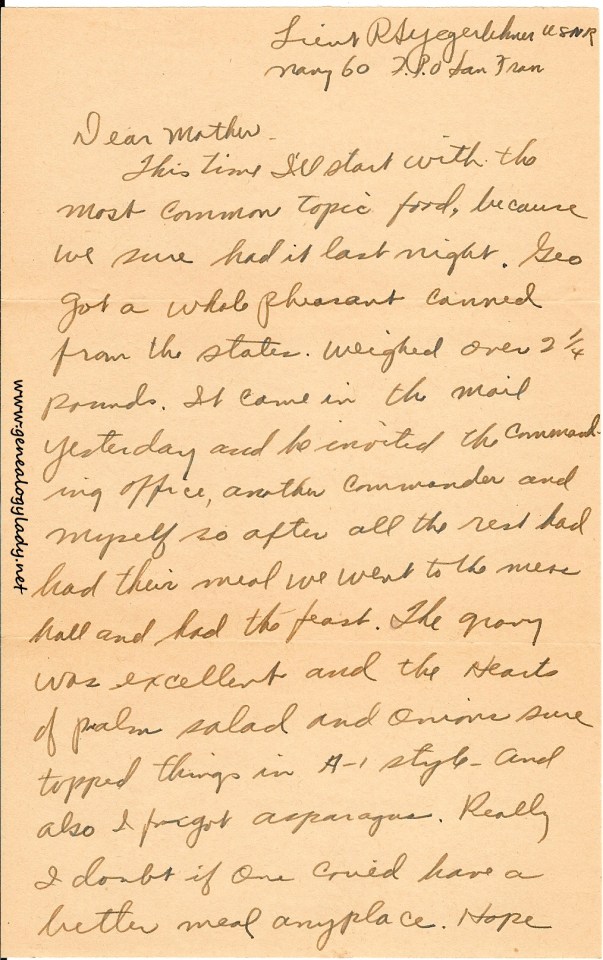 Lieut R S Yegerlehner USNR
Navy 60 F.P.O San Fran
Dear Mother -
This time I'll start with the
most common topic food, because
we sure had it last night. Geo
got a whole pheasant canned
from the states. Weighed over 2 1/4
pounds. It came in the mail
yesterday and he invited the command-
ing office, another commander and
myself so after all the rest had
had their meal we went to the mess
hall and had the feast. The gravy
was excellent and the Hearts
of palm salad and onions sure
topped things in A-1 style - and
also I forgot asparagus. Really
I doubt if one could have a
better meal anyplace. Hope
www.genealogylady.net